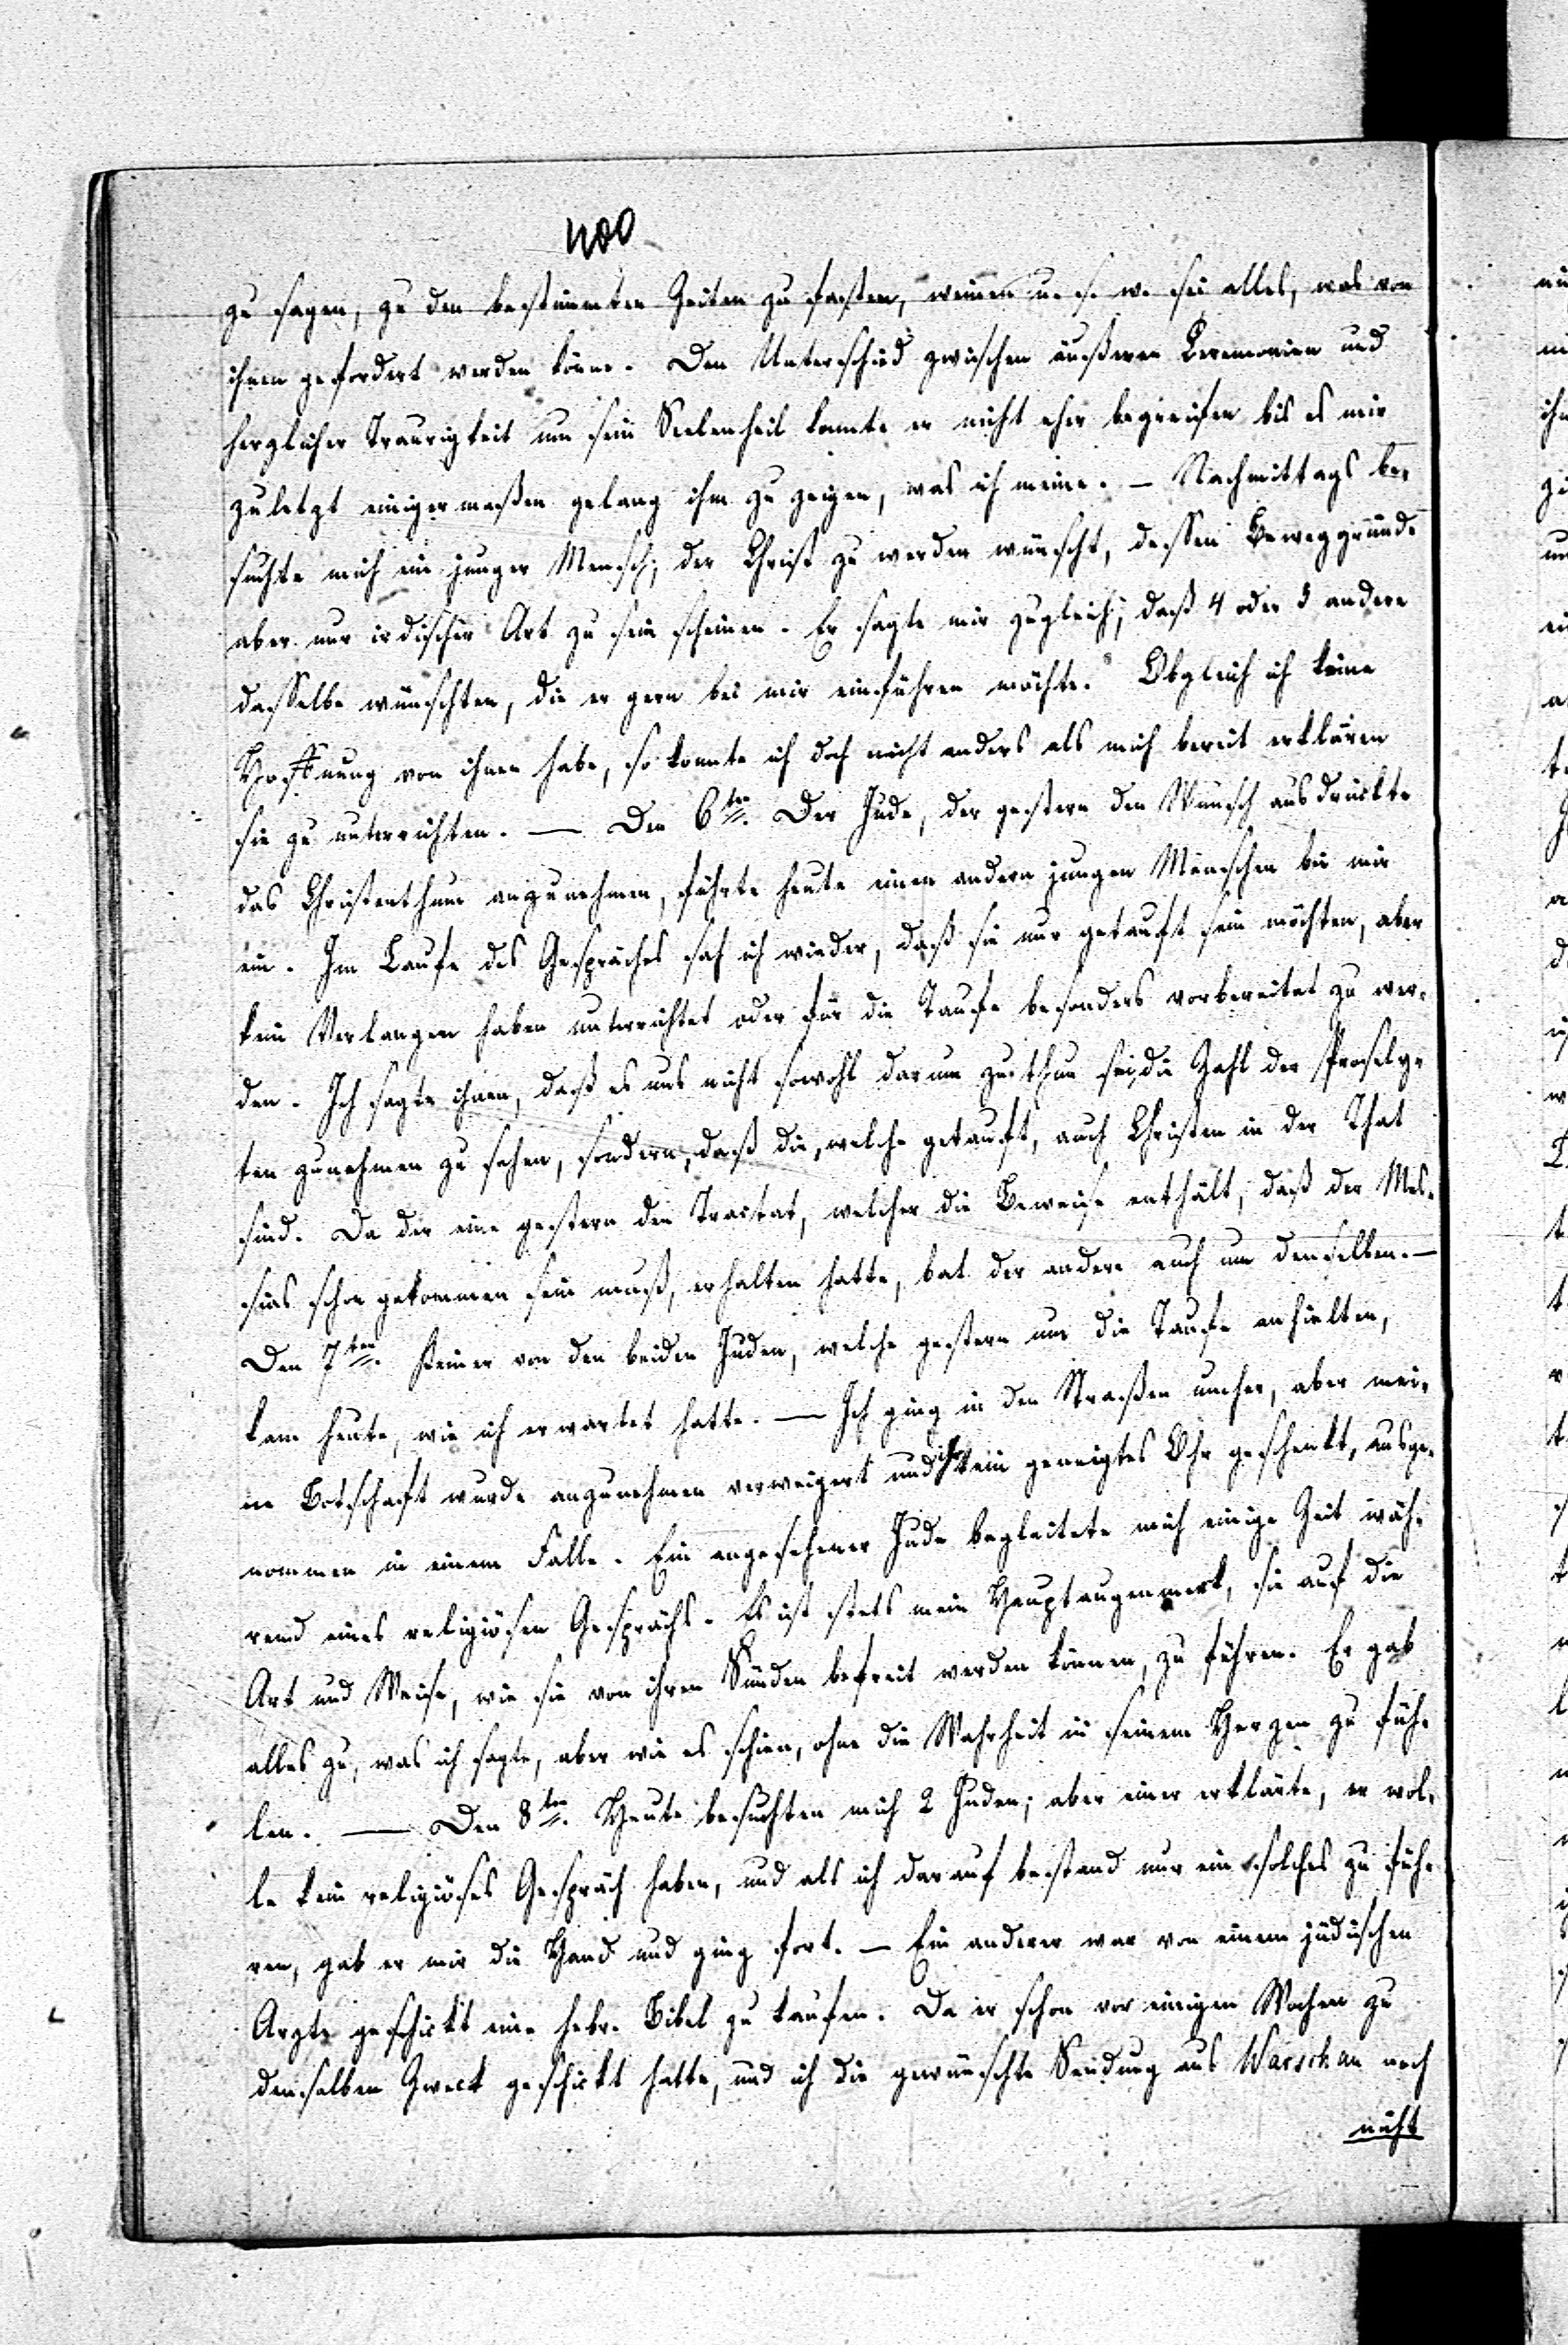 400
zu sagen, zu den bestimmten Zeiten zu fasten, weinen u. s. w. sei alles, was von
ihnen gefordert werden könne. Den Unterschied zwischen äußeren Ceremonien und
herzlicher Traurigkeit um sein Seelenheil konnte er nicht eher begreifen bis es mir
zuletzt einigermaßen gelang ihm zu zeigen, was ich meine. – Nachmittags be-
suchte mich ein junger Mensch, der Christ zu werden wünscht, dessen Beweggründe
aber nur irdischer Art zu sein scheinen. Er sagte mir zugleich, daß 4 oder 5 andere
dasselbe wünschten, die er gern bei mir einführen möchte. Obgleich ich keine
Hoffnung von ihnen habe, so konnte ich doch nicht anders als mich bereit erklären
sie zu unterrichten. — Den 6ten. Der Jude, der gestern den Wunsch ausdrückte
das Christenthum anzunehmen, führte heute einen andern jungen Menschen bei mir
ein. Im Laufe des Gespräches sah ich wieder, daß sie nur getauft sein möchten, aber
kein Verlangen haben unterrichtet oder für die Taufe besonders vorbereitet zu wer-
den. Ich sagte ihnen, daß es uns nicht sowohl darum zu thun sei, die Zahl der Prosely-
ten zunehmen zu sehen, sondern, daß die, welche getauft, auch Christen in der That
sind. Da der eine gestern den Tractat, welcher die Beweise enthält, daß der Mes-
sias schon gekommen sein muß, erhalten hatte, bat der andere auch um denselben. —
Den 7ten. Keiner von den beiden Juden, welche gestern um die Taufe anhielten,
kam heute, wie ich erwartet hatte. — Ich ging in den Straßen umher, aber mei-
ne Botschaft wurde anzunehmen verweigert und ihr kein geneigtes Ohr geschenkt, ausge-
nommen in einem Falle. Ein angesehener Jude begleitete mich einige Zeit wäh-
rend eines religiösen Gesprächs. Es ist stets mein Hauptaugenmerk, sie auf die
Art und Weise, wie sie von ihren Sünden befreit werden können, zu führen. Er gab
alles zu, was ich sagte, aber wie es schien, ohne die Wahrheit in seinem Herzen zu füh-
len. — Den 8ten. Heute besuchten mich 2 Juden; aber einer erklärte, er wol-
le kein religiöses Gespräch haben, und als ich darauf bestand nur ein solches zu füh-
ren, gab er mir die Hand und ging fort. — Ein anderer war von einem jüdischen
Arzte geschickt eine hebr. Bibel zu kaufen. Da er schon vor einigen Wochen zu
demselben Zweck geschickt hatte, und ich die gewünschte Sendung aus Warschau noch
nicht